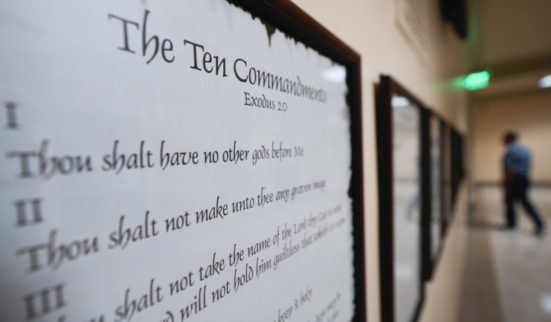 The Ten Commandments
Exodus 20
I
Thou shalt have no other gods before Me
II
Thou shalt not make unto thee any graven image
III
Thou shalt not take the name of the Lord thy God in vain,
Lord will not hold him guiltless that taketh
keep it holy